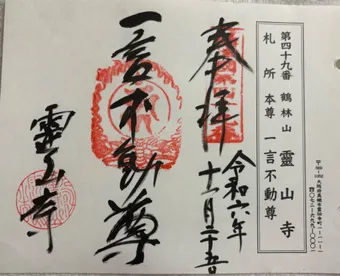 第四十九番 鶴林山 靈山寺
札所本尊 一言不動尊
奉拝
令和六年
十二月二十五日
一言不動尊
靈山寺